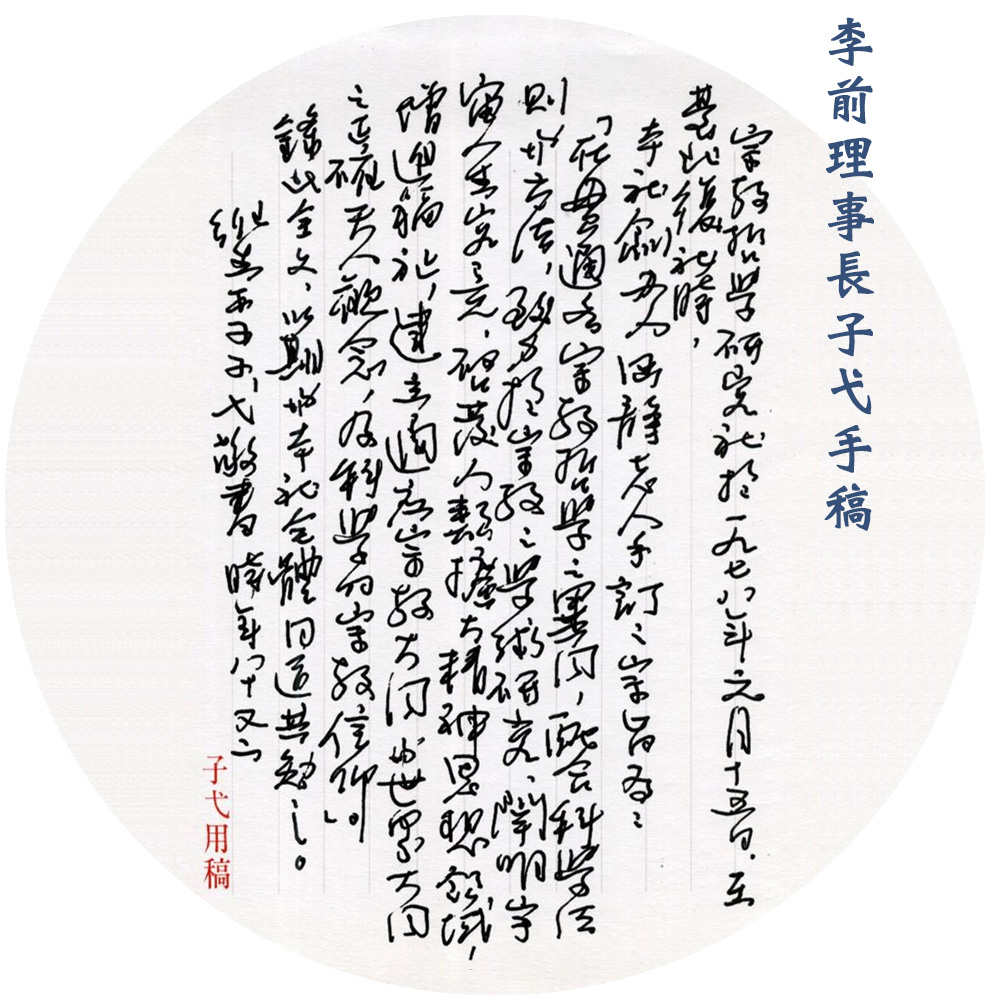 李前理事長子弋手稿
宗教哲學研究社於一九七八年元月十五日,在
臺北復社時,
本社創辦人涵靜老人手訂之宗旨為:
「在貫通各宗教哲學之異同,配合科學法
則與方法,致力於宗教之學術研究、闡明宇
宙人生究竟,啟發人類擴大精神思想領域,
增進福祉,建立適應宗教大同與世界大同
之正確天人觀念,及科學的宗教信仰。」
錄此全文,以期與本社全體同道共勉之。
子弋敬書 時年八十又
子弋用稿